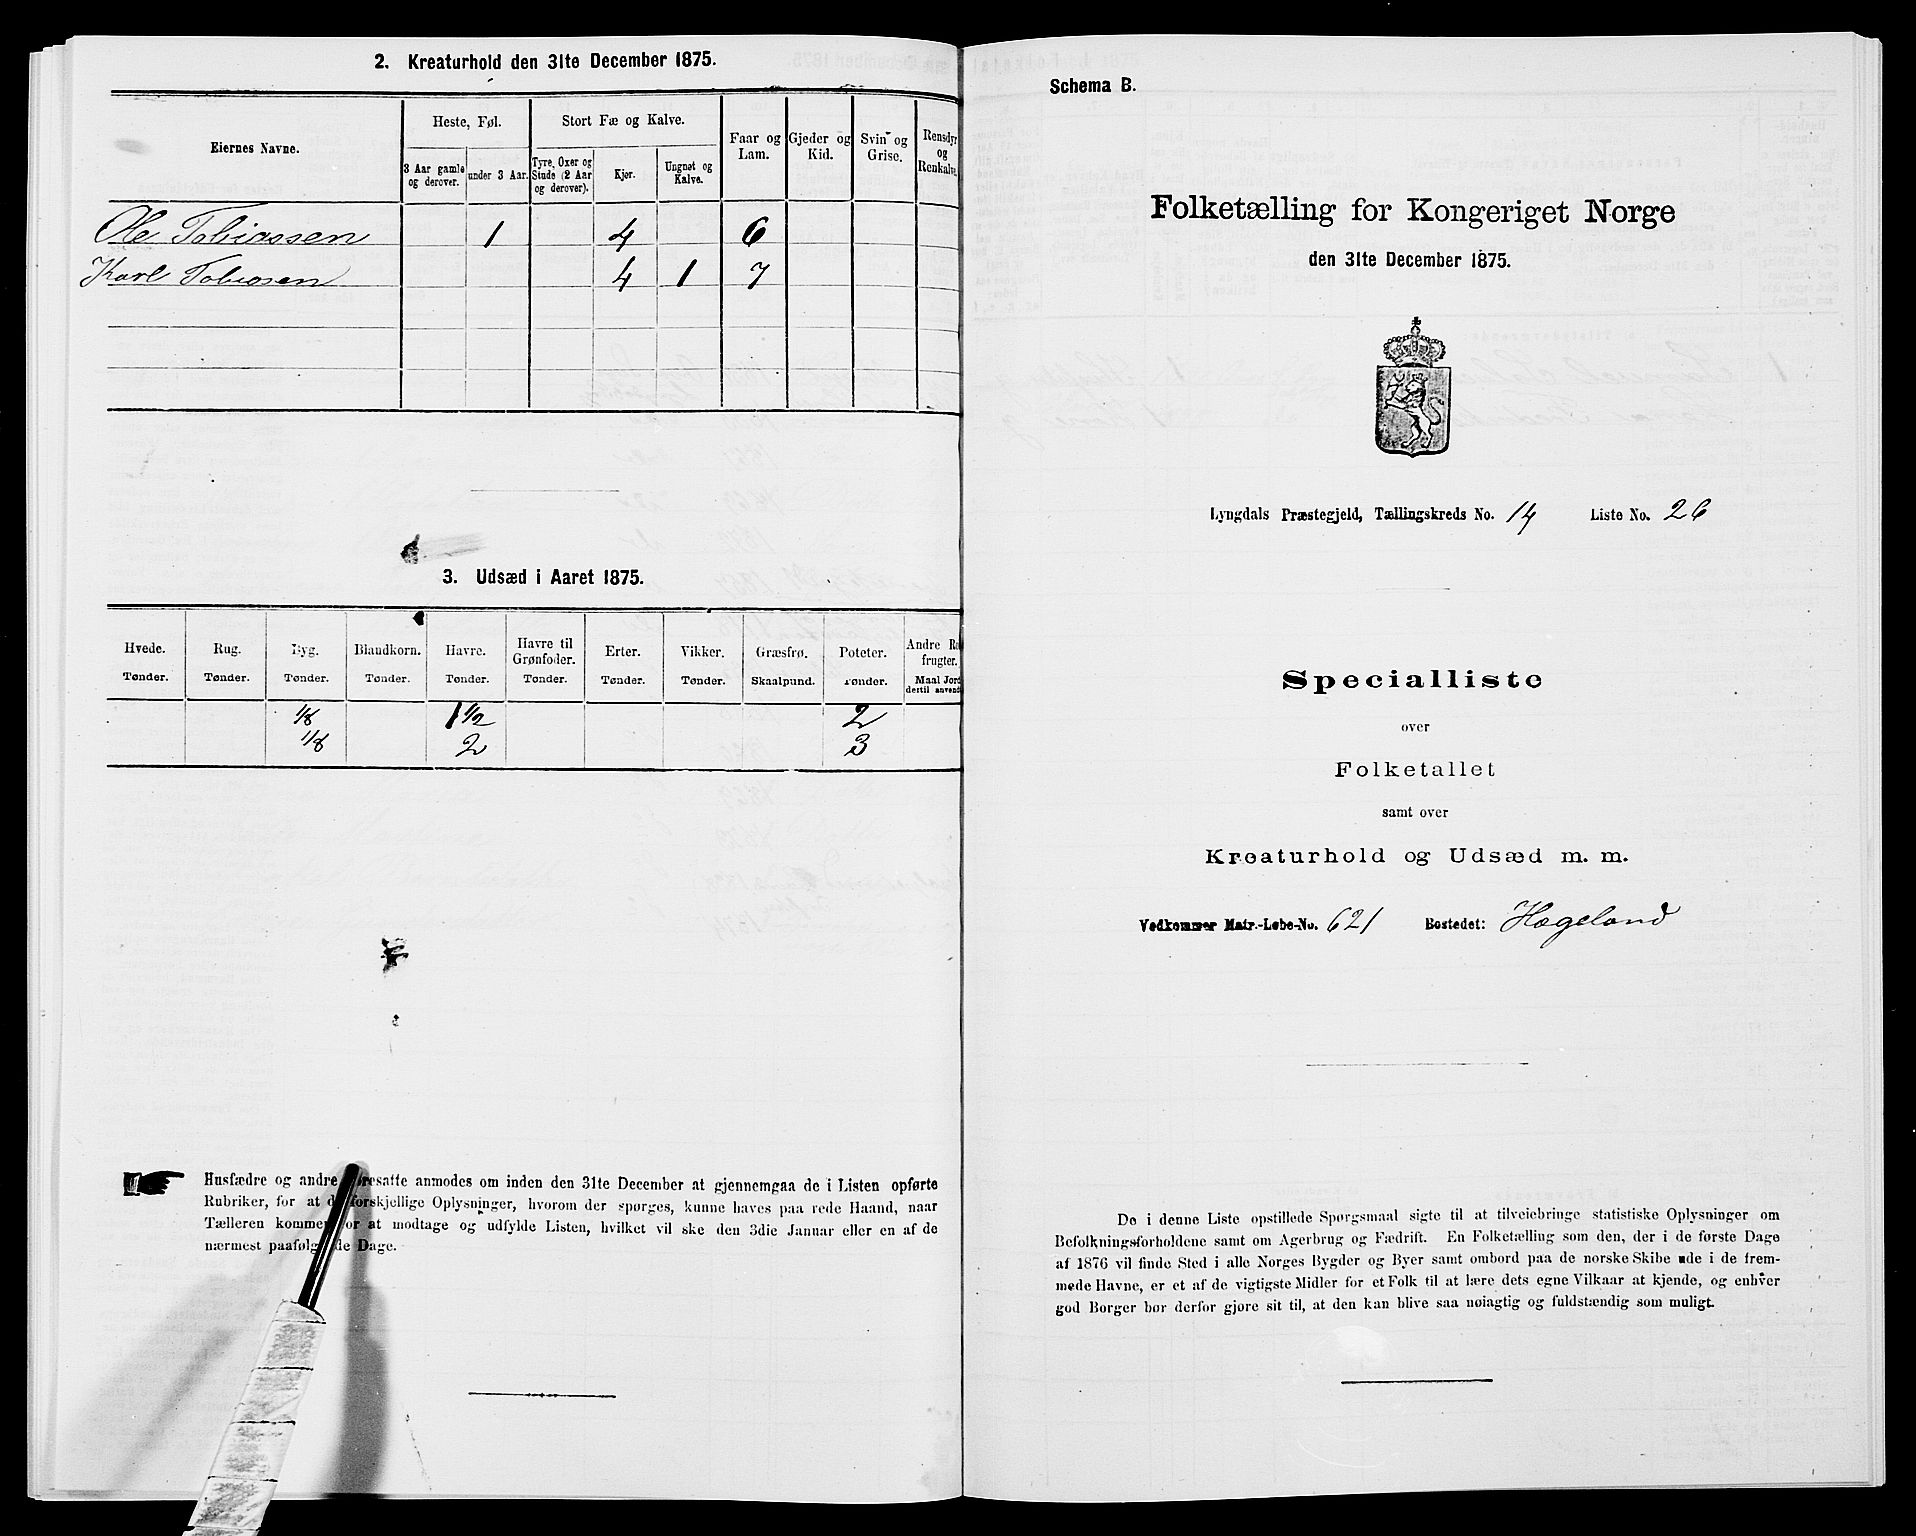 2. Kreaturhold den 31te December 1875.
Eiernes Navne.
Heste, Føl.
Stort Fæ og Kalve.
Faar og Lam.
Gjeder og Kid.
Svin og Grise.
Rensdyr og Renkalve.
3 Aar gamle og derover.
under 3 Aar.
Tyre, Oxer og Stude (2 Aar og derover).
Kjør.
Ungnøt og Kalve.
Ole Tobiassen 1 4 6
Karl Tobiasen 4 1 7
3. Udsæd i Aaret 1875.
Hvede. Rug. Byg. Blandkorn. Havre. Havre til Grønfoder. Erter. Vikker. Græsfrø. Poteter. Andre frugter.
Tønder. Tønder. Tønder. Tønder. Tønder. Tønder. Tønder. Tønder. Skaalpund. Tønder. Maal Jord dertil
1/8 1 1/2 2
1/8 2 3
Husfædre og andre Foresatte anmodes om inden den 31te December at gjennemgaa de i Listen opførte
Rubriker, for at de forskjellige Oplysninger, hvorom der spørges, kunne haves paa rede Haand, naar
Tælleren kommer for at modtage og udfylde Listen, hvilket vil ske den 3die Januar eller en af de
nærmest paafølgende Dage.
Schema B.
Folketælling for Kongeriget Norge
den 31te December 1875.
Lyngdals Præstegjeld, Tællingskreds No. 14 Liste No. 26
Specialliste
over
Folketallet
samt over
Kreaturhold og Udsæd m. m.
Vedkommer Matr.-Løbe-No. 621 Bostedet: Hægeland
De i denne Liste opstillede Spørgsmaal sigte til at tilveiebringe statistiske Oplysninger om
Befolkningsforholdene samt om Agerbrug og Fædrift. En Folketælling som den, der i de første Dage
af 1876 vil finde Sted i alle Norges Bygder og Byer samt ombord paa de norske Skibe ude i de frem-
mede Havne, er et af de vigtigste Midler for et Folk til at lære dets egne Vilkaar at kjende, og enhver
god Borger bør derfor gjøre sit til, at den kan blive saa nøiagtig og fuldstændig som muligt.